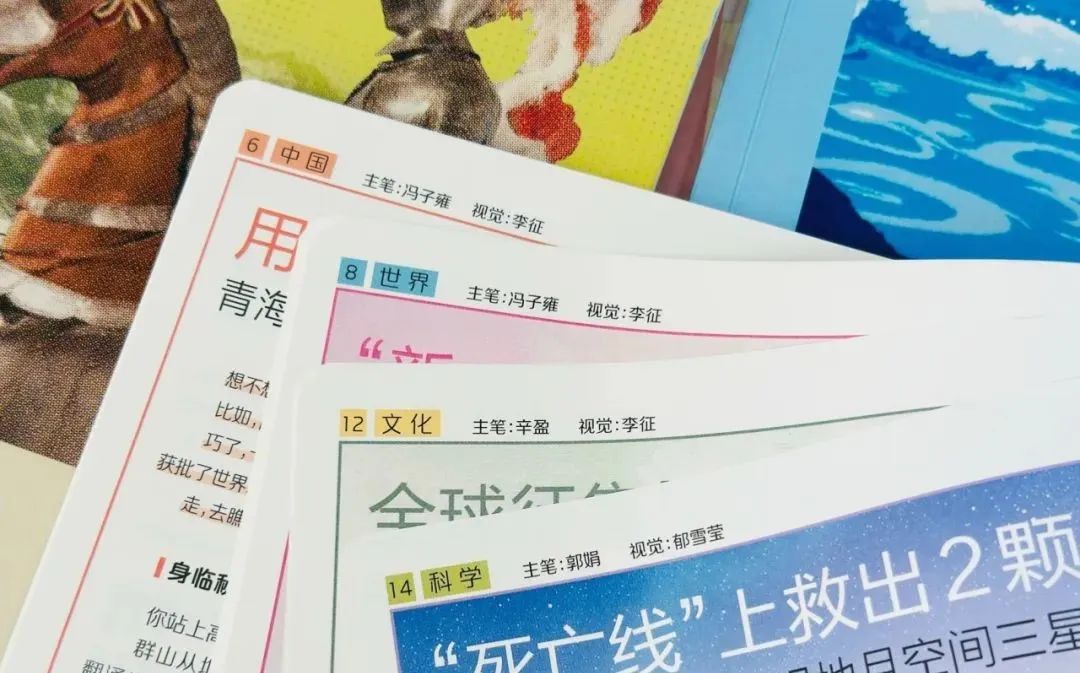 6 中国 主笔:冯子雍 视觉:李征
用
青海
想不想
比如,
巧了,一
获批了世界
走,去瞧
身临秘
你站上高
群山从
翻译
8 世界 主笔:冯子雍 视觉:李征
12 文化 主笔:辛盈 视觉:李征
全球征集
14 科学 主笔:郭娟 视觉:郁雪莹
“死亡线”上救出2颗
地月空间三星